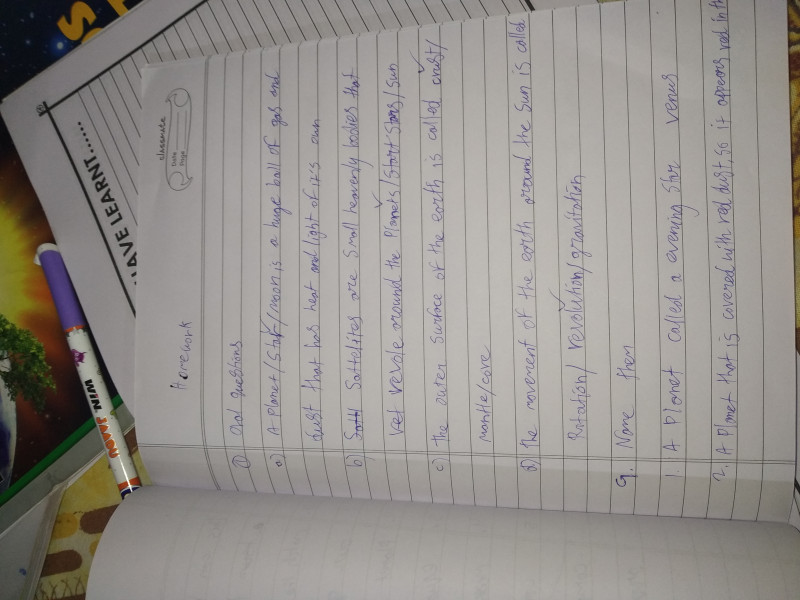 HAVE LEARNT......
classmate
Date
Page
Homework
Oral Questions
a) A Planet/Star/moon is a huge ball of gas and
dust that has heat and light of it's own
b) Sattelites are Small heavenly bodies that
revole around the Planets/Stars/sun
c) the outer surface of the earth is called crust/
mantle/core
d) the movement of the earth around the sun is called
Rotation/revolution/gravitation
Q. Name them
1. A Planet called a evening star venus
2. A Planet that is covered with red dust, so it appears red in th
WIN